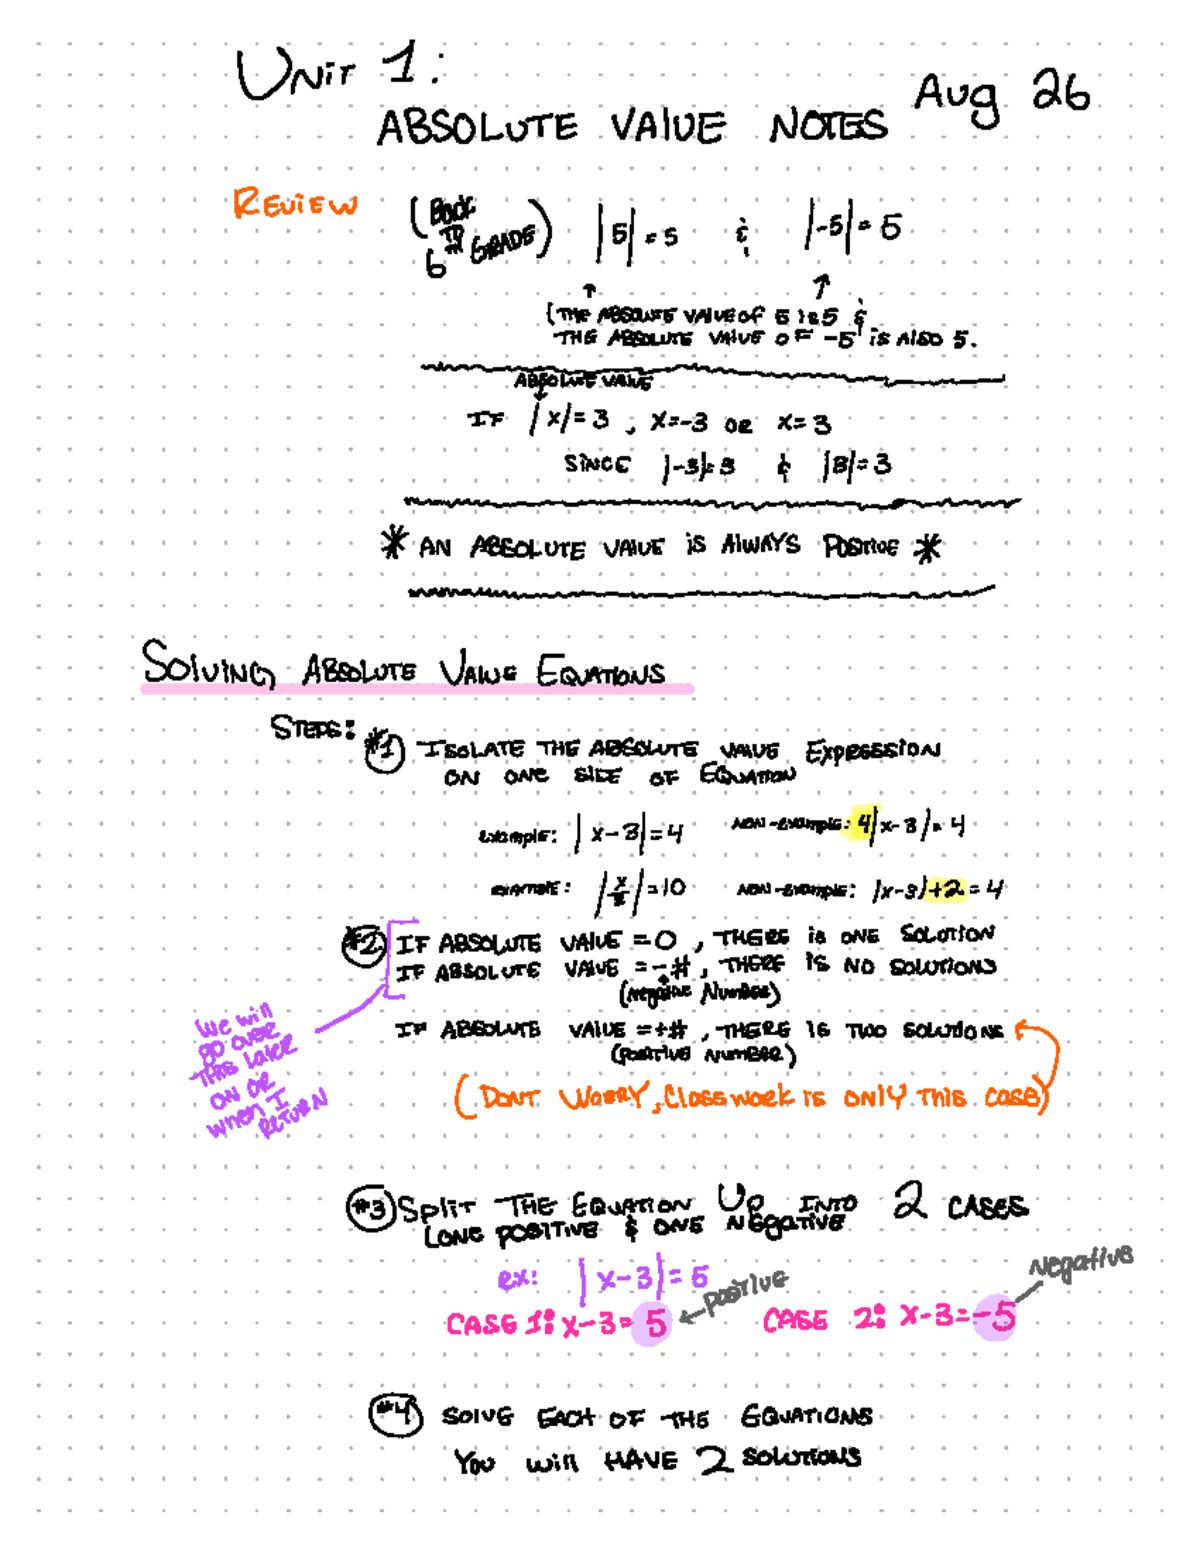 Unit 1:
Aug 26
ABSOLUTE VALUE NOTES
REVIEW
(BACK TO 6TH GRADE)
|5| = 5 & |-5| = 5
(THE ABSOLUTE VALUE OF 5 IS 5 &
THE ABSOLUTE VALUE OF -5 IS ALSO 5.
ABSOLUTE VALUE
IF |x| = 3 , x=-3 OR x=3
SINCE |-3|=3 & |3|=3
* AN ABSOLUTE VALUE IS ALWAYS POSITIVE *
SOLVING ABSOLUTE VALUE EQUATIONS
STEPS:
#1 ISOLATE THE ABSOLUTE VALUE EXPRESSION
ON ONE SIDE OF EQUATION
example: |x-3|=4 NON-example: 4|x-3|=4
example: |x/2|=10 NON-example: |x-3|+2=4
#2 IF ABSOLUTE VALUE =0, THERE is ONE SOLUTION
IF ABSOLUTE VALUE =-#, THERE IS NO SOLUTIONS
(negative Number)
We will
go over
THIS later
ON OR
when I
RETURN
IF ABSOLUTE VALUE =+#, THERE IS TWO SOLUTIONS
(POSITIVE NUMBER)
(DONT WORRY, Classwork IS ONLY THIS CASE)
#3 Split THE EQUATION UP INTO 2 CASES
ONE POSITIVE & ONE NEGATIVE
ex: |x-3|=5
CASE 1: x-3=5 positive
CASE 2: x-3=-5 Negative
#4 SOLVE EACH OF THE EQUATIONS
YOU will HAVE 2 SOLUTIONS